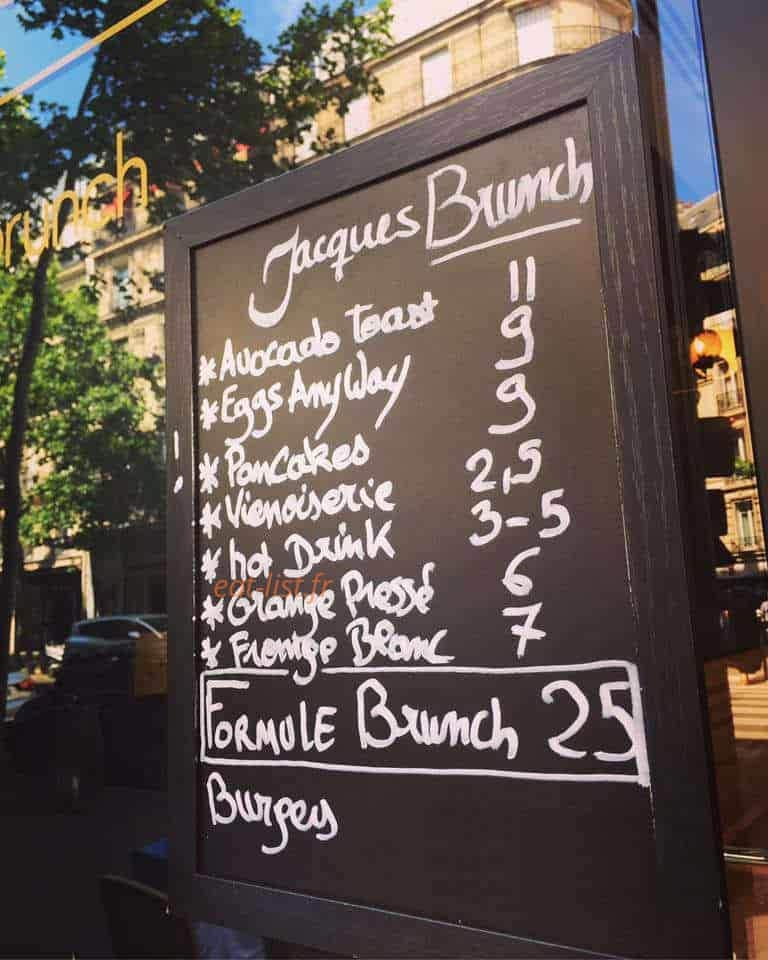 brunch
Jacques Brunch
* Avocado Toast 11
* Eggs AnyWay 9
* Pancakes 9
* Vienoiserie 2,5
* hot Drink 3-5
eat-list.fr
* Orange Pressé 6
* Fromage Blanc 7
FORMULE Brunch 25
Burgers